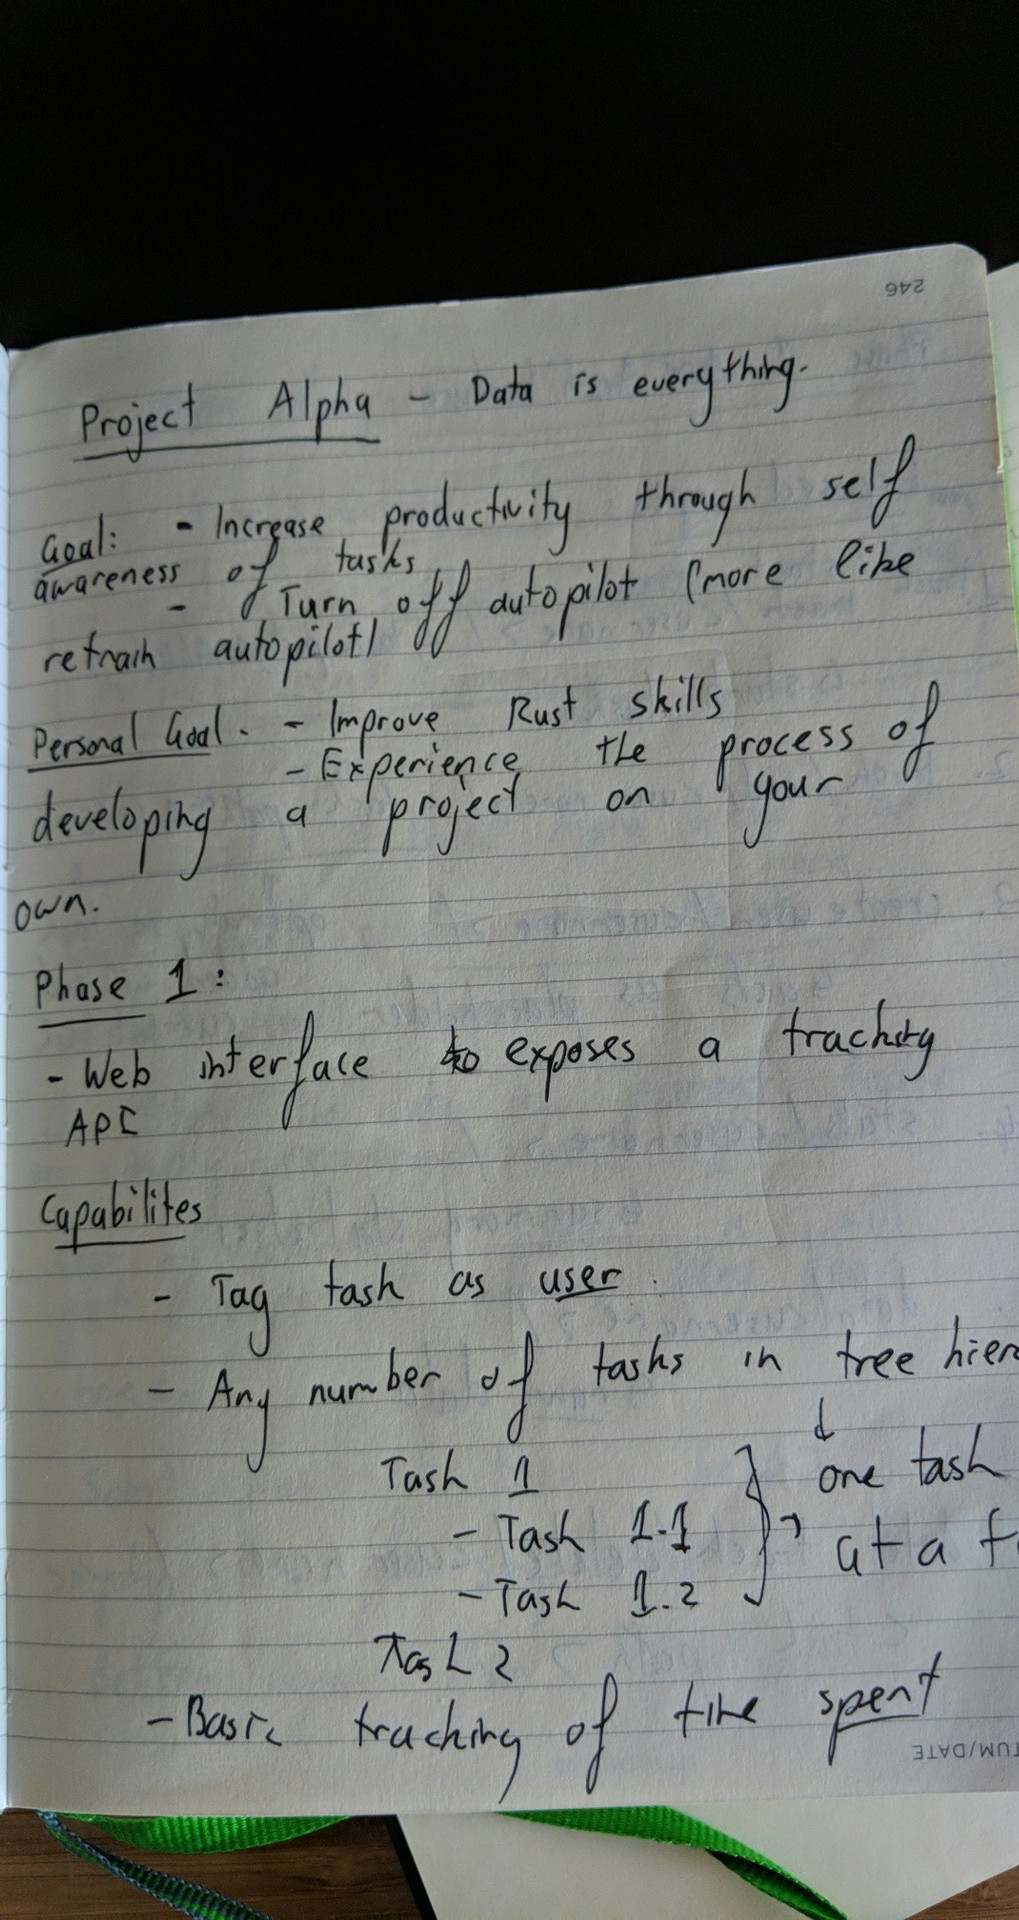 246
Project Alpha - Data is everything.
Goal: - Increase productivity through self
awareness of tasks
- Turn off autopilot (more like
retrain autopilot)
Personal Goal. - Improve Rust skills
- Experience the process of
developing a project on your
own.
Phase 1:
- Web interface to exposes a tracking
API
Capabilites
- Tag task as user
- Any number of tasks in tree
Task 1
one task
- Task 1.1
at a
- Task 1.2
Task 2
- Basic tracking of time spent
/DATE